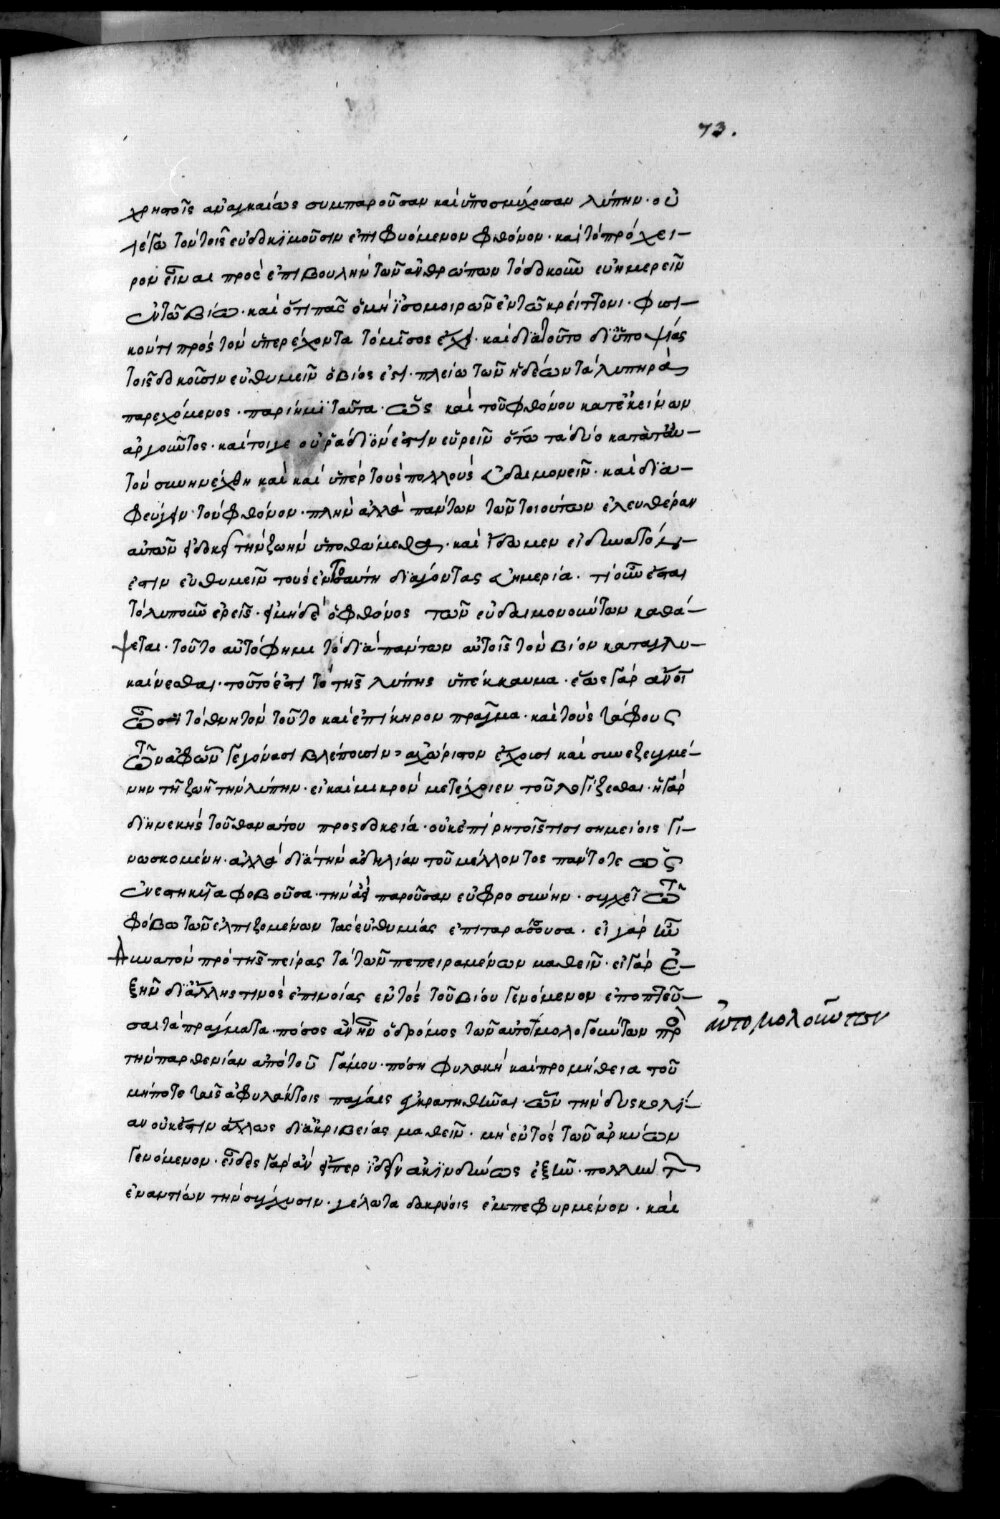 73.
χρηστοῖς ἀναγκαίως συμπαροῦσαν καὶ ὑποσμύχουσαν λύπην· οὐ
λέγω τὸν τοῖς εὐδοκιμοῦσιν ἐπιφυόμενον φθόνον· καὶ τὸ πρόχει-
ρον εἶναι πρὸς ἐπιβουλὴν τῶν ἀνθρώπων τὸ δοκοῦν εὐημερεῖν
ἐν τῷ βίῳ· καὶ ὅτι πᾶς ὁ μὴ ἰσομοιρῶν ἐν τῷ κρείττονι· φυσι-
κόν τι πρὸς τὸν ὑπερέχοντα τὸ μῖσος ἔχει· καὶ διὰ τοῦτο δι' ὑποψίας
τοῖς δοκοῦσιν εὐθυμεῖν ὁ βίος ἐστὶ· πλείω τῶν ἡδέων τὰ λυπηρὰ
παρεχόμενος· παρίημι ταῦτα· ὡς καὶ τοῦ φθόνου κατ' ἐκείνων
ἀργοῦντος· καίτοιγε οὐ ῥᾴδιόν ἐστιν εὑρεῖν ὅτῳ τὰ δύο κατὰ ταυ-
τὸν συνηνέχθη καὶ καὶ ὑπὲρ τοὺς πολλοὺς εὐδαιμονεῖν· καὶ δια-
φεύγειν τὸν φθόνον· πλὴν ἀλλὰ πάντων τῶν τοιούτων ἐλευθέραν
αὐτῶν εἰ δοκεῖ τὴν ζωὴν ὑποθώμεθα· καὶ ἴδωμεν εἰ δυνατόν
ἐστιν εὐθυμεῖν τοὺς ἐν τοσαύτῃ διάγοντας εὐημερίᾳ· τί οὖν ἔσται
τὸ λυποῦν ἐρεῖς· εἰ μηδὲ ὁ φθόνος τῶν εὐδαιμονούντων καθά-
ψεται· τοῦτο αὐτὸ φημι τὸ διὰ πάντων αὐτοῖς τὸν βίον καταγλυ-
καίνεσθαι· τοῦτό ἐστι τὸ τῆς λύπης ὑπέκκαυμα· ἕως γὰρ ἂν οἱ
ἄνθρωποι τὸ θνητὸν τοῦτο καὶ ἐπίκηρον πρᾶγμα· καὶ τοὺς τάφους
τῶν ἀφ' ὧν γεγόνασι βλέπουσιν· ἀχώριστον ἔχουσι καὶ συνεζευγμέ-
νην τῇ ζωῇ τὴν λύπην· εἰ καὶ μικρὸν μετέχοιεν τοῦ λογίζεσθαι· ἡ γὰρ
διηνεκὴς τοῦ θανάτου προσδοκεία· οὐκ ἐπὶ ῥητοῖς τισι σημείοις γι-
νωσκομένη· ἀλλὰ διὰ τὴν ἀδηλίαν τοῦ μέλλοντος πάντοτε ὡς
ἐνεστηκυῖα φοβοῦσα· τὴν ἀεὶ παροῦσαν εὐφροσύνην· συγχεῖ τῷ
φόβῳ τῶν ἐλπιζομένων τὰς εὐθυμίας ἐπιταράσσουσα· εἰ γὰρ ἦν
δυνατὸν πρὸ τῆς πείρας τὰ τῶν πεπειραμένων μαθεῖν· εἰ γὰρ ἐ-
ξῆν δι' ἄλλης τινὸς ἐπινοίας ἐντὸς τοῦ βίου γενόμενον ἐποπτεῦ-
σαι τὰ πράγματα· πόσος ἂν ἦν ὁ δρόμος τῶν αὐτομολογούντων πρὸς
τὴν παρθενίαν ἀπὸ τοῦ γάμου· πόση φυλακὴ καὶ προμήθεια τοῦ
μήποτε ταῖς ἀφυλάκτοις παγαῖς ἐγκρατηθῆναι· ὧν τὴν δυσκολί-
αν οὐκ ἔστιν ἄλλως δι' ἀκριβείας μαθεῖν· μὴ ἐντὸς τῶν ἀρκύων
γενόμενον· εἶδες γὰρ ἂν εἴπερ ἰδεῖν ἀκινδύνως ἐξῆν· πολλὴν τῶν
ἐναντίων τὴν σύγχυσιν· γέλωτα δακρύοις ἐμπεφυρμένον· καὶ
αὐτομολούντων